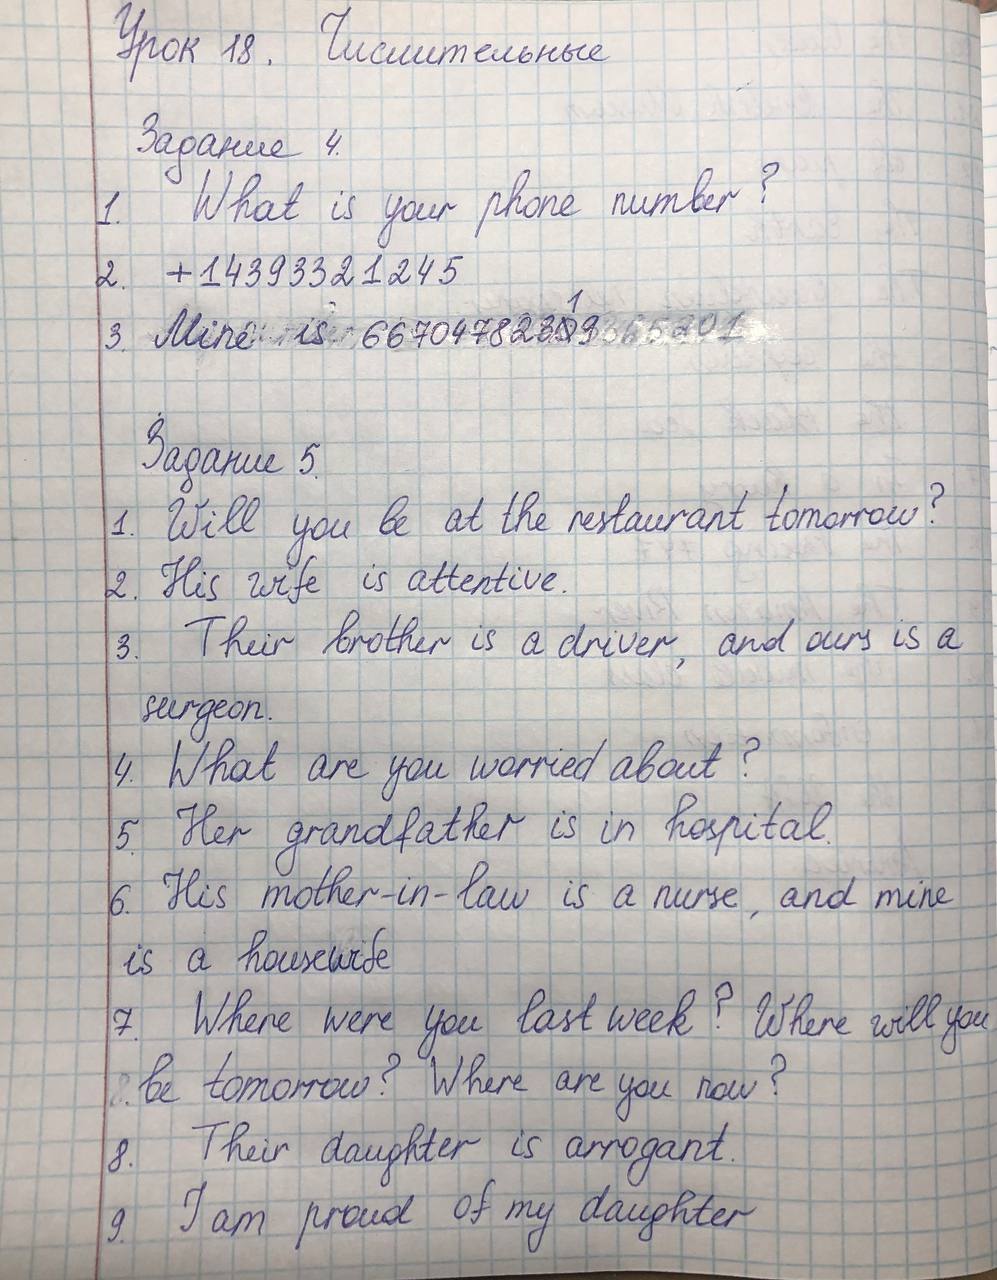 Урок 18. Числительные
Задание 4.
1. What is your phone number?
2. +14393321245
3. Mine is
Задание 5.
1. Will you be at the restaurant tomorrow?
2. His wife is attentive.
3. Their brother is a driver, and ours is a
surgeon.
4. What are you worried about?
5. Her grandfather is in hospital.
6. His mother-in-law is a nurse, and mine
is a housewife
7. Where were you last week? Where will you
be tomorrow? Where are you now?
8. Their daughter is arrogant.
9. I am proud of my daughter